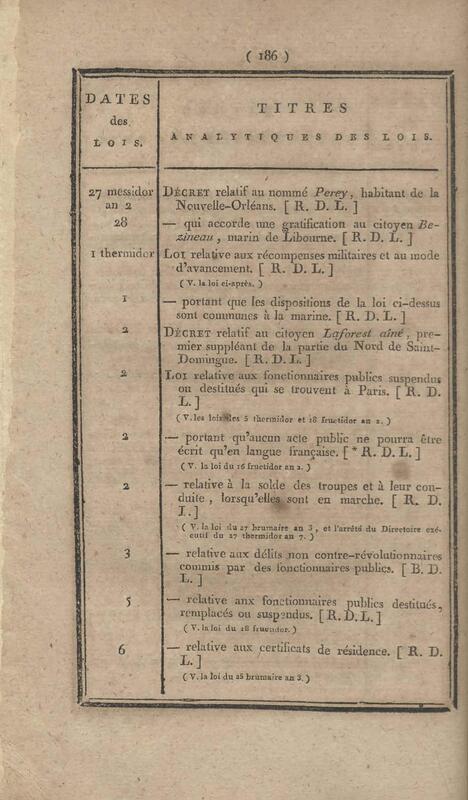 ( 186 )
DATES
des
LOIS.
TITRES
ANALYTIQUES DES LOIS.
27 messidor
an 2
DÉCRET relatif au nommé Perey, habitant de la
Nouvelle-Orléans. [ R. D. L. ]
28
— qui accorde une gratification au citoyen Be-
zineau, marin de Libourne. [ R. D. L. ]
1 thermidor
LOI relative aux récompenses militaires et au mode
d'avancement. [ R. D. L. ]
( V. la loi ci-après. )
1
— portant que les dispositions de la loi ci-dessus
sont communes à la marine. [ R. D. L. ]
2
DÉCRET relatif au citoyen Laforest aîné, pre-
mier suppléant de la partie du Nord de Saint-
Domingue. [ R. D. L. ]
2
LOI relative aux fonctionnaires publics suspendus
ou destitués qui se trouvent à Paris. [ R. D.
L. ]
( V. les lois des 5 thermidor et 18 fructidor an 2. )
2
— portant qu'aucun acte public ne pourra être
écrit qu'en langue française. [ * R. D. L. ]
( V. la loi du 16 fructidor an 2. )
2
— relative à la solde des troupes et à leur con-
duite, lorsqu'elles sont en marche. [ R. D.
I. ]
( V. la loi du 27 brumaire an 3, et l'arrêté du Directoire exé-
cutif du 27 thermidor an 7. )
3
— relative aux délits non contre-révolutionnaires
commis par des fonctionnaires publics. [ B. D.
L. ]
5
— relative anx fonctionnaires publics destitués,
remplacés ou suspendus. [ R. D. L. ]
( V. la loi du 18 fructidor. )
6
— relative aux certificats de résidence. [ R. D.
L. ]
( V. la loi du 25 brumaire an 3. )